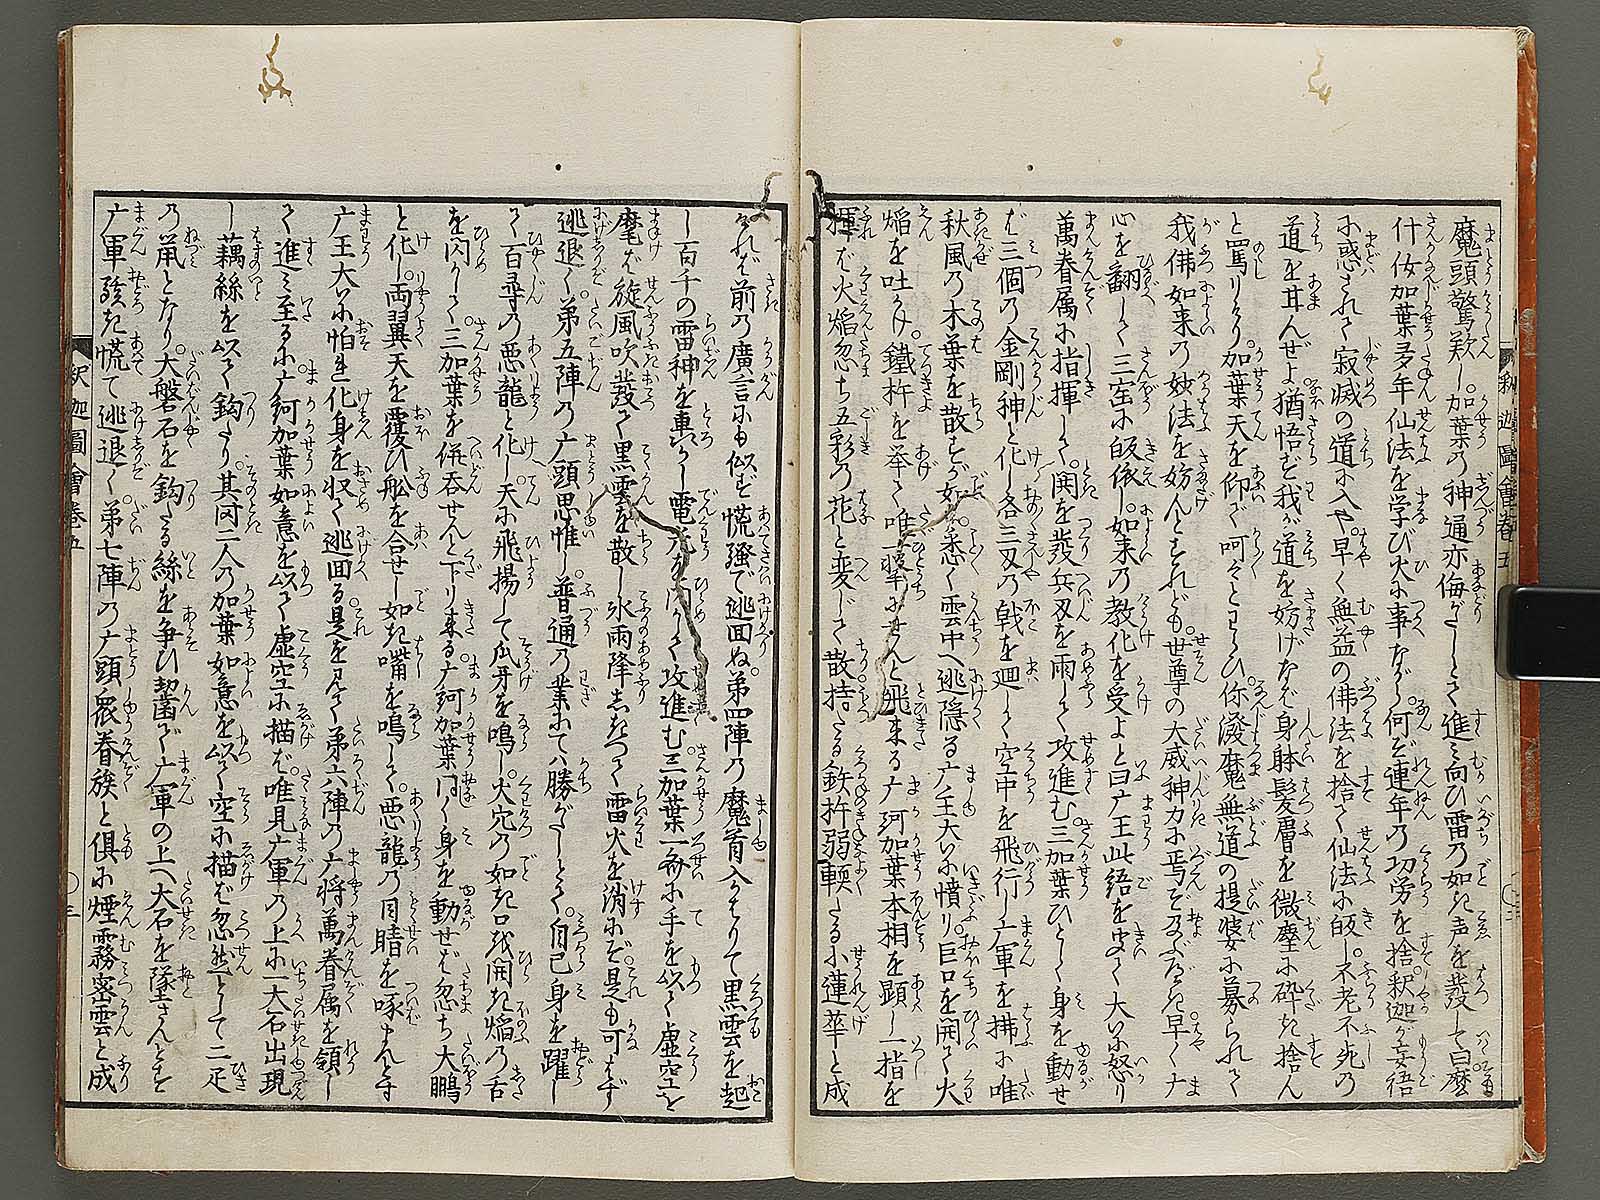 魔頭驚歎し。加葉の神通亦侮がたしとて進み向ひ雷の如き声を発して曰麼
什汝加葉多年仙法を学び火に事ながら。何ぞ連年の功労を捨釈迦が妄語
に惑されて寂滅の道に入や。早く無益の佛法を捨て仙法に皈し。不老不死の
道を甘んぜよ猶悟ずして我が道を妨げなば身躰髪膚を微塵に砕き捨ん
と罵りけり。加葉天を仰で呵々とわらひ。你潑魔無道の提婆に募られて
我佛如来の妙法を妨んとすれども。世尊の大威神力に焉ぞ及ぶべき。早く
心を翻して三宝に皈依し。如来の教化を受よと曰广王此語を聞て大に怒り
萬眷属に指揮して。鬨を發兵刄を雨して攻進む。三加葉ひとしく身を動せ
ば三個の金剛神と化し各三叉の戟を廻して空中を飛行し广軍を拂に唯
秋風の木葉を散すが如。悉く雲中へ逃隠る广王大に憤り。巨口を開て火
焔を吐かけ。鐵杵を挙て唯一撃にせんと飛来る广訶加葉本相を顕し一指を
揮ば火焔忽ち五彩の花と変じて散。持たる鉄杵弱軟たる小蓮華と成
ければ前の廣言にも似ず慌騒で逃回ぬ。第四陣の魔首入かはりて黒雲を起
し百千の雷神を轟かし電光を閃かして攻進む三加葉一齊に手を以て虚空を
麾ば旋風吹發て黒雲を散し氷雨降しきつて雷火を消にぞ。是も可はず
逃退く。弟五陣の广頭思惟し。普通の業にては勝がたしとて。自己身を躍し
て百尋の悪龍と化し。天に飛揚して爪牙を鳴し。火穴の如き口を開き焔の舌
を閃かして三加葉を併呑せんと下り来る。广訶加葉同く身を動せば忽ち大鵬
と化し。両翼天を覆ひ舩を合せし如き嘴を鳴して。悪龍の目睛を啄まんとす
广王大に怕れ化身を収て逃回る是を見て弟六陣の广将萬眷属を領し
て進み至るに。广訶加葉如意を以て虚空に描ば。唯見广軍の上に一大石出現
し藕絲を以て鈎たり。其間二人の加葉如意を以て空に描ば忽然として二疋
の鼠となり。大磐石を鈎たる絲を争ひ齧で广軍の上へ大石を墜さんとすを
广軍駭き慌て逃退く弟七陣の广頭衆眷族と倶に煙霧密雲と成
釈迦圖會巻五
釈迦圖會巻五
〇三